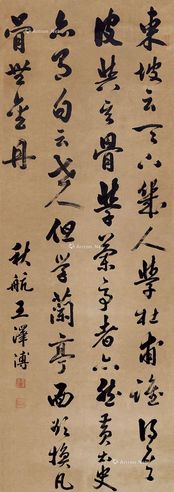 東坡云天下幾人學杜甫誰得其
皮與其骨學蘭亭者亦然黃太史
亦云世人但學蘭亭面欲換凡
骨無金丹
秋航王澤溥